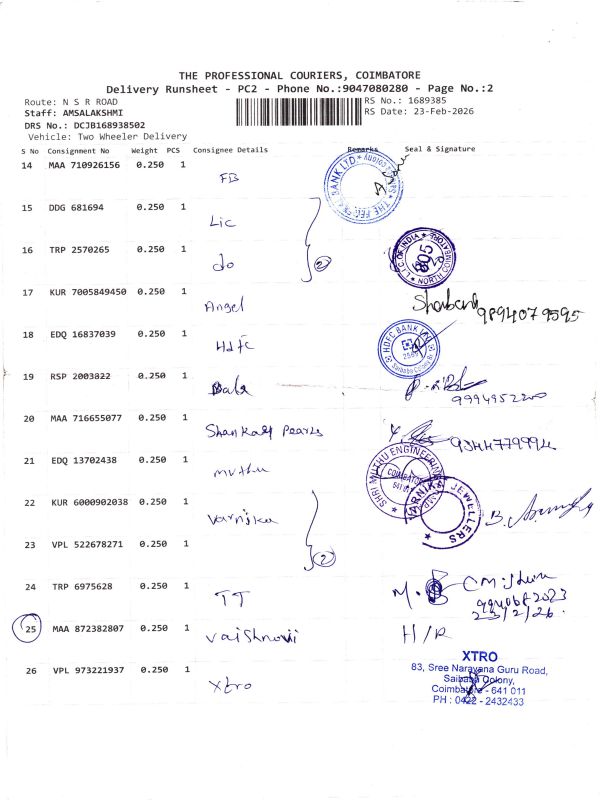 THE PROFESSIONAL COURIERS, COIMBATORE
Delivery Runsheet - PC2 - Phone No.:9047080280 - Page No.:2
Route: N S R ROAD
RS No.: 1689385
Staff: AMSALAKSHMI
RS Date: 23-Feb-2026
DRS No.: DCJB168938502
Vehicle: Two Wheeler Delivery
S No Consignment No Weight PCS Consignee Details Remarks Seal & Signature
14 MAA 710926156 0.250 1 FB
15 DDG 681694 0.250 1 Lic
16 TRP 2570265 0.250 1 do
2
L.I.C OF INDIA
805
NORTH COIMBATORE
17 KUR 7005849450 0.250 1 Angel
18 EDQ 16837039 0.250 1 Hdfc
HDFC BANK LTD
19 RSP 2003822 0.250 1
20 MAA 716655077 0.250 1 Shankar Pearls
21 EDQ 13702438 0.250 1 muthu
SHRI MUTHU ENGINEERING
22 KUR 6000902038 0.250 1 Varnika
VARNIKA JEWELLERS
23 VPL 522678271 0.250 1
2
24 TRP 6975628 0.250 1 TT
23/2/26.
25 MAA 872382807 0.250 1 Vaishnavi H/R
26 VPL 973221937 0.250 1 Xtro
XTRO
83, Sree Narayana Guru Road,
Saibaba Colony,
Coimbatore - 641 011
PH : 0422 - 2432433